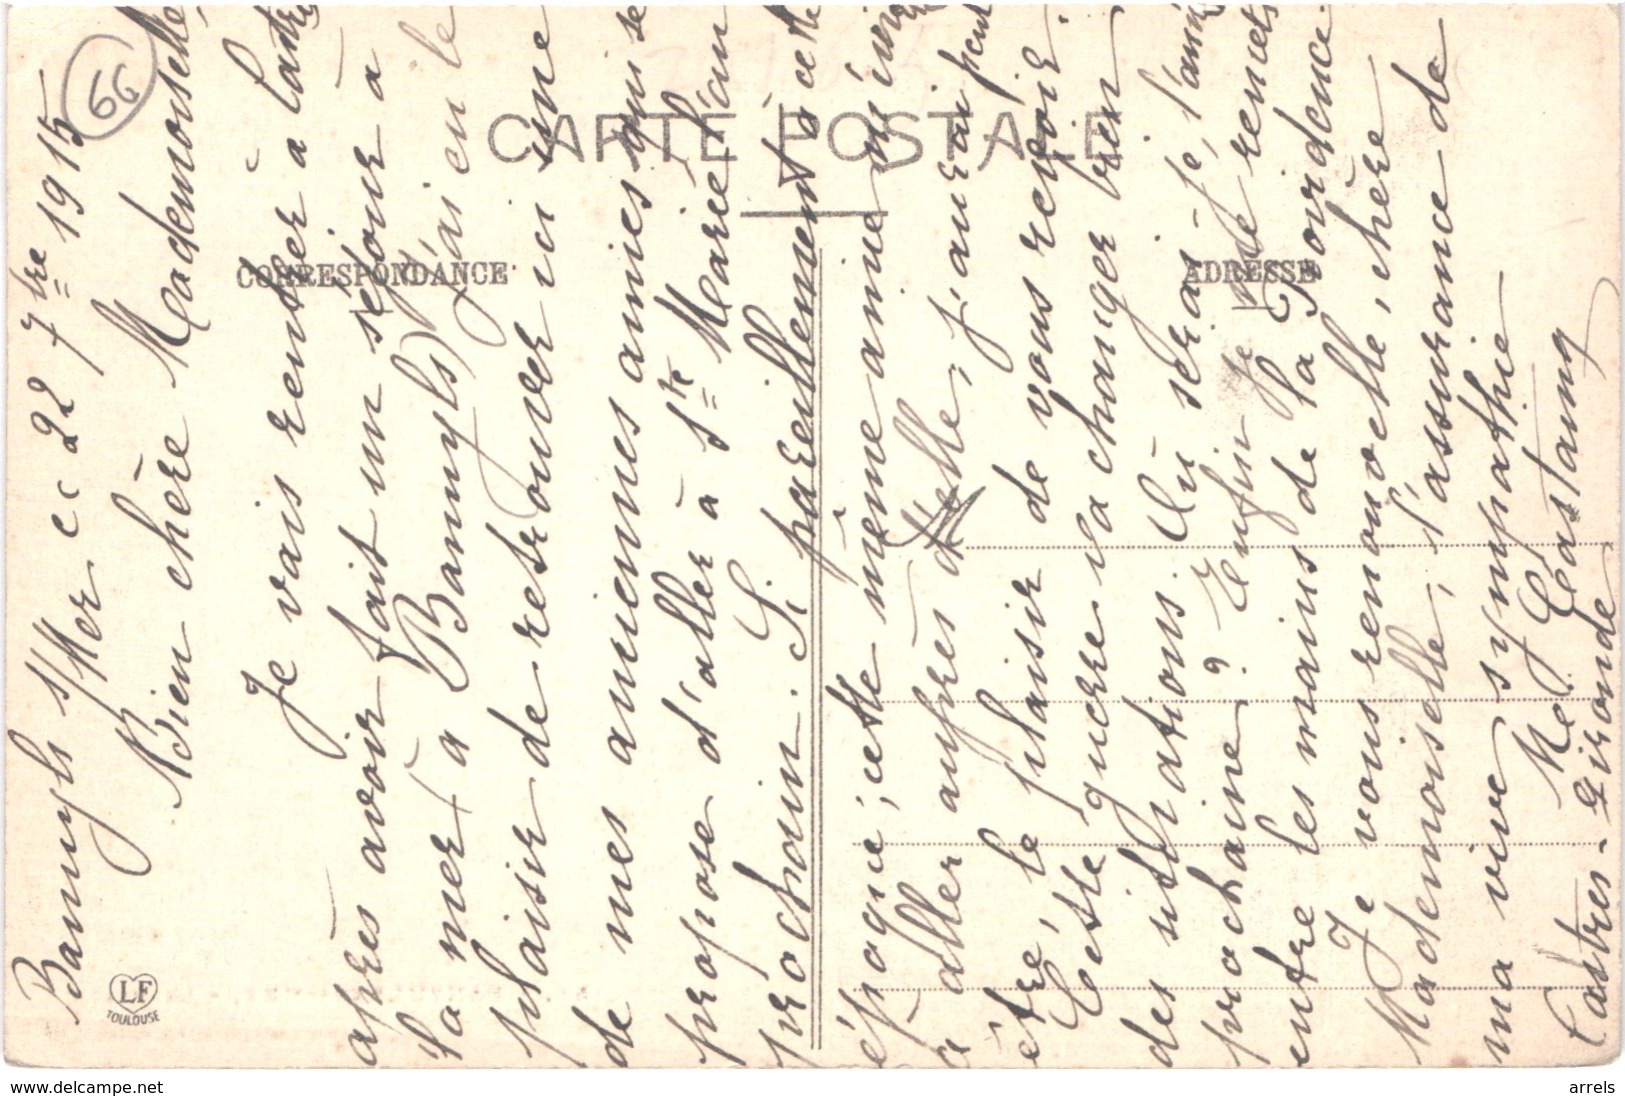 66
CARTE POSTALE
CORRESPONDANCE
ADRESSE
LF
TOULOUSE
Banyuls s/Mer ce 22 7bre 1915
Bien chère Mademoiselle,
Je vais rentrer à Castres
après avoir fait un séjour à
la mer (à Banyuls) j'ai eu le
plaisir de retrouver ici une
de mes anciennes amies qui se
propose d'aller à Ste Marie l'an
prochain. Si pareillement à cette
époque, cette même amie m'invite
à aller auprès d'elle, j'aurai peut
être, le plaisir de vous revoir.
Cette guerre va changer bien
des situations. Où serai-je, l'année
prochaine? Enfin je me remets
entre les mains de la Providence.
Je vous renouvelle, chère
Mademoiselle, l'assurance de
ma vive sympathie
M. Castaing
Castres-Gironde
www.delcampe.net
arrels